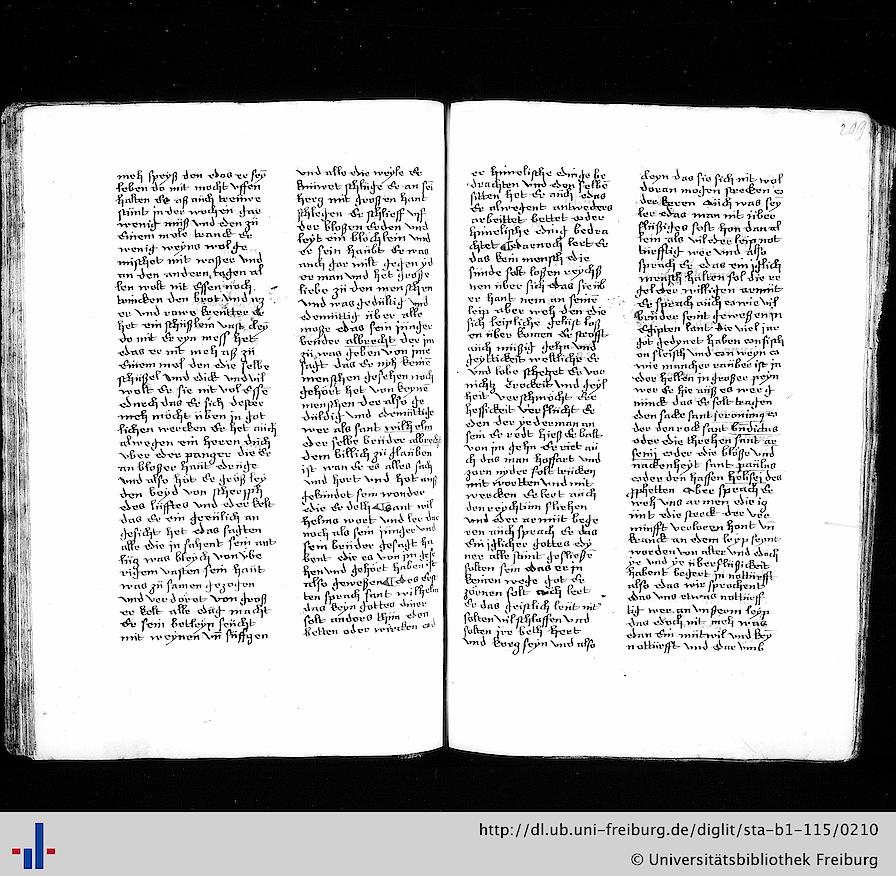 meh speyß den das er sey
leben do mit mocht vffen
halten Er aß auch trewre
stunt in der wochen gar
wenig muß vnd den zu
Einem mole tranck Er
wenig weyns wol ge
mischet mit wasser vnd
an den andern tagen al
ben wolt nit Essen noch
trincken den brot vnd wz
er vnd rowe kreutter Er
het ein schüßlein vast cley
do mit Er eyn mess het
das er nit meh aß zu
Einem mol den die selbe
schüssel vnd dick vnd vil
wolt Er sie nit vol Esse
durch das Er sich dester
meh möcht üben in got
lichen wercken Er het auch
alwegen ein heren duch
vber der panger die Er
an blosser haut druge
vnd also hat Er groß ley
den beyd von
des lufftes vnd der kelt
das Er ein greulich an
gesicht het das sagten
alle die jn sahent sein ant
litz was bleych von vbe
rigem vasten sein haut
was zu samen gezogen
vnd ver dorret von gross
er kelt alle dag macht
Er sein betleyn feucht
mit weynen vn süffzgen
vnd alle die weyle Er
knuwet schluge Er an sei
herz mit grossen hant
schlegen Er schlieff vff
der blossen Erden vnd
leyt ein blöchlein vnd
er sein haubt Er was
auch gar milt gegen yd
er man vnd het grosse
liebe zu den menschen
vnd was gedultig vnd
demuttig über alle
mosse das sein junger
bruder albrecht der jm
zu was geben von jme
sagt das er nyh keine
menschen gesehen noch
gehört het von keyne
menschen der also ge
duldig vnd demuttige
wer als sant wilhelm
der selbe bruder albrecht
dem billich zu glauben
ist wan er es alles sach
vnd hort vnd hot auß
gekundet sein wonder
die Er deth Sant wil
helms wort vnd ler dar
noch als sein junger vnd
sein bruder gesagt ha
bent die es von jm gese
hen vnd gehört haben ist
also gewesen Des erst
ten sprach sant wilhelm
das keyn gottes diner
solt anders thun den
betten oder wircken od
er himelische dinge be
drachten vnd den selbe
sitten het Er auch das
Er alwegent antweders
arbeittet bettet oder
himelische ding bedra
chtet Darnoch lert Er
das kein mensch die
sunde solt lossen
nen über sich das sie üb
er hant nem an seine
leip aber weh den die
sich leipliche gelüst loß
en über komen Er strofft
auch müssig gehn vnd
geytikeit weltliche Er
vnd lobe schetzet Er vor
nichtz Drockeit vnd geyl
heit verschmocht Er
hessickeit verflucht Er
den der yederman an
sein Er redt hieß Er balt
von jm gehn Er riet au
ch das man hoffart vnd
zorn nyder solt trücken
mit wortten vnd mit
wercken Er lert auch
den reichtum fliehen
vnd der armut bege
ren auch sprach Er das
Ein iglicher gottes dy
ner alle stunt geflisse
solten sein das er jn
keinen wege got Er
zörnen solt auch lert
Er das geistlich leut nit
solten vil schlaffen vnd
solten jre bett hert
vnd korg seyn vnd also
209
cleyn das sie sich nit wol
doran mogen strecken o
der keren Auch was sey
ler das man nit über
flüssiges solt hon dan al
lein als vil der leip not
turfftig wer vnd also
sprach Er das ein iglich
mensch halten sol die re
gel der willigen armut
Er sprach auch es wie vil
bruder seint gewessen jn
Egipten lant die viel jar
got gedynet haben on fisch
on fleisch vnd on weyn o
wie mancher rauber ist jn
der hellen jn großer peyn
wer Er hie auß es wer g
nunck das Er solt tragen
den sacke sant jeronimus o
der den rock sant Endictus
oder die threhen sant ar
senij oder die blösse vnd
nackenheyt sant paulus
oder den hassen helisei des
propheten Aber sprach Er
weh vns armen die ia
nit die sterck der ver
nunfft verloren hont vn
kranck an dem leyp seynt
worden von alter vnd doch
ye vnd ye überflüssickeit
habent begert jn notturfft
also das wir sprochent
das vns etwas notturff
tig wer an vnserm leyp
das doch nit meh was
dan Ein mutwil vnd key
n otturfft vnd dar vmb
http://dl.ub.uni-freiburg.de/diglit/sta-b1-115/0210
© Universitätsbibliothek Freiburg